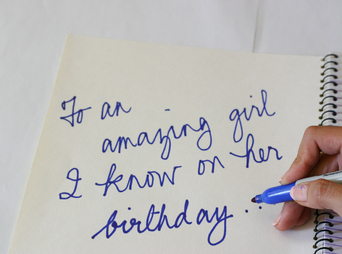 To an
amazing girl
I know on her
birthday...